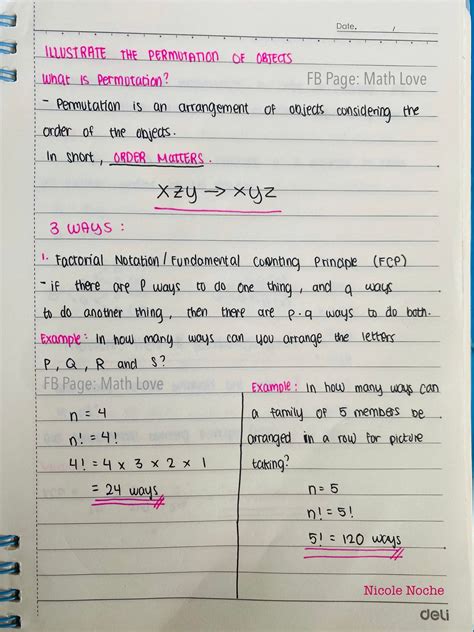 Date. /
ILLUSTRATE THE PERMUTATION OF OBJECTS
What is Permutation?
FB Page: Math Love
- Permutation is an arrangement of objects considering the
order of the objects.
In short, ORDER MATTERS.
xzy → xyz
3 WAYS :
1. Factorial Notation / Fundamental Counting Principle (FCP)
- if there are P ways to do one thing, and q ways
to do another thing, then there are p·q ways to do both.
Example: In how many ways can you arrange the letters
P, Q, R and S?
FB Page: Math Love
n = 4
n! = 4!
4! = 4 x 3 x 2 x 1
= 24 ways
Example: In how many ways can
a family of 5 members be
arranged in a row for picture
taking?
n = 5
n! = 5!
5! = 120 ways
Nicole Noche
deli